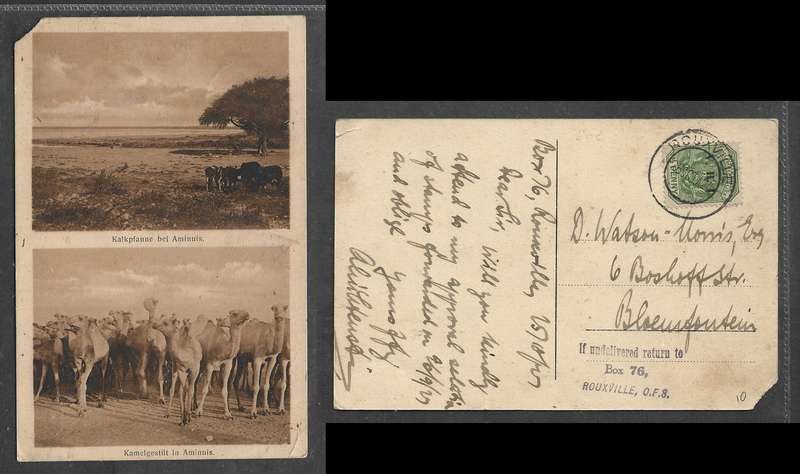 Kalkpfanne bei Aminuis.
Kamelgestüt in Aminuis.
Box 76, Rouxville,
Dear Sir, Will you kindly
attend to my approval selection
of stamps forwarded on 26/9/27
and oblige
Yours ffy
ROUXVILLE
D. Watson-Morris, Esq
6 Boshoff Str.
Bloemfontein
If undelivered return to
Box 76,
ROUXVILLE, O.F.S.
10